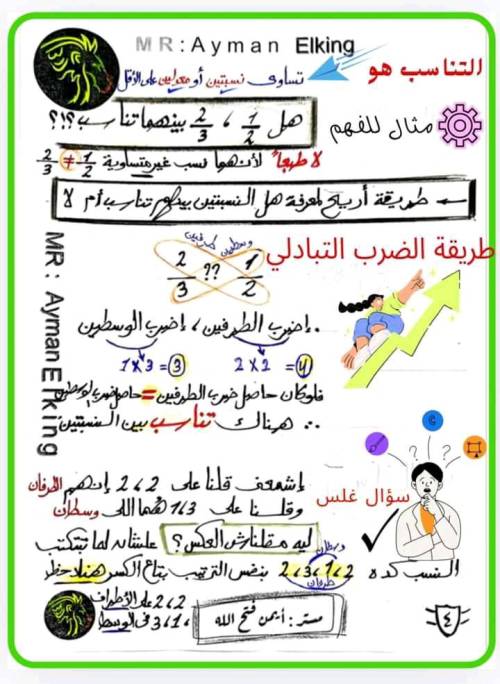 MR : Ayman Elking
التناسب هو
تساوى نسبتين أو معدلين على الأقل
هل 1/2 ، 2/3 بينهما تناسب ؟!؟
مثال للفهم
لا طبعاً لأنهما نسب غير متساوية 1/2 ≠ 2/3
← طريقة أريح لمعرفة هل النسبتين بينهم تناسب أم لا
طريقة الضرب التبادلي
وسطين طرفين
2/3 ?? 1/2
MR : Ayman Elking
. إضرب الطرفين ، إضرب الوسطين
2 x 2 = 4
1 x 3 = 3
فلو كان حاصل ضرب الطرفين = حاصل ضرب الوسطين
∴ هناك تناسب بين النسبتين
? ?
إشمعنى قلنا على 2 ، 2 إنهم الطرفان
سؤال غلس
وقلنا على 3 ، 1 هما اللى وسطان
ليه مقلناش العكس ؟ علشان لما تتكتب
وسطان
النسب كده 2 ، 1 ، 3 ، 2 بنفس الترتيب بتاع الكسر هنلاحظ
طرفان
2 ، 2 على الأطراف
3 ، 1 فى الوسط
مستر : أيمن فتح الله
٤